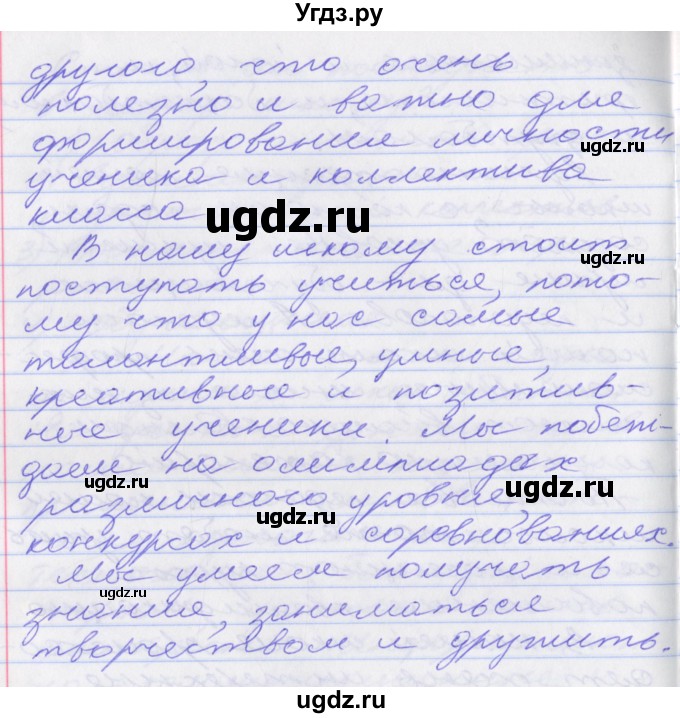 Угдз.ру
другого, что очень
полезно и важно для
формирования личности
ugdz.ru
ученика и коллектива
класса
ugdz.ru
В нашу школу стоит
ugdz.ru
поступать учиться, пото-
му что у нас самые
талантливые, умные,
ugdz.ru
креативные и позитив-
ные ученики. Мы побеж-
даем на олимпиадах
ugdz.ru
ugdz.ru
различного уровня,
ugdz.ru
конкурсах и соревнованиях.
Мы умеем получать
ugdz.ru
знания, заниматься
творчеством и дружить.
ugdz.ru